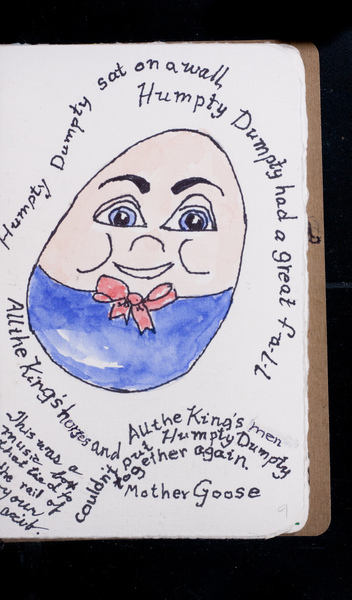 Humpty Dumpty sat on a wall,
Humpty Dumpty had a great f-a-l-l
All the King's horses and
All the King's men
couldn't put Humpty Dumpty
together again.
Mother Goose
This was a
music box
that tied to
the rail of
your